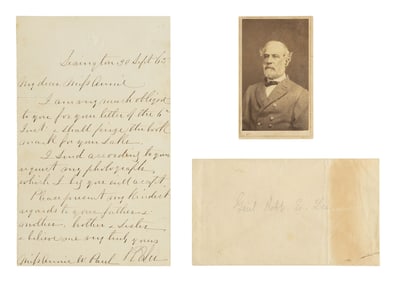 Lexington 30 Sept '65
My dear Miss Annie
I am very much obliged
to you for your letter of the 6th
Inst & shall prize the book
mark for your sake.
I send according to your
request my photograph,
which I beg you will accept.
Please present my kindest
regards to your father &
mother, brother & sister
& believe me very truly yours
Miss Annie W. Paul R E Lee
Genl Robt E. Lee